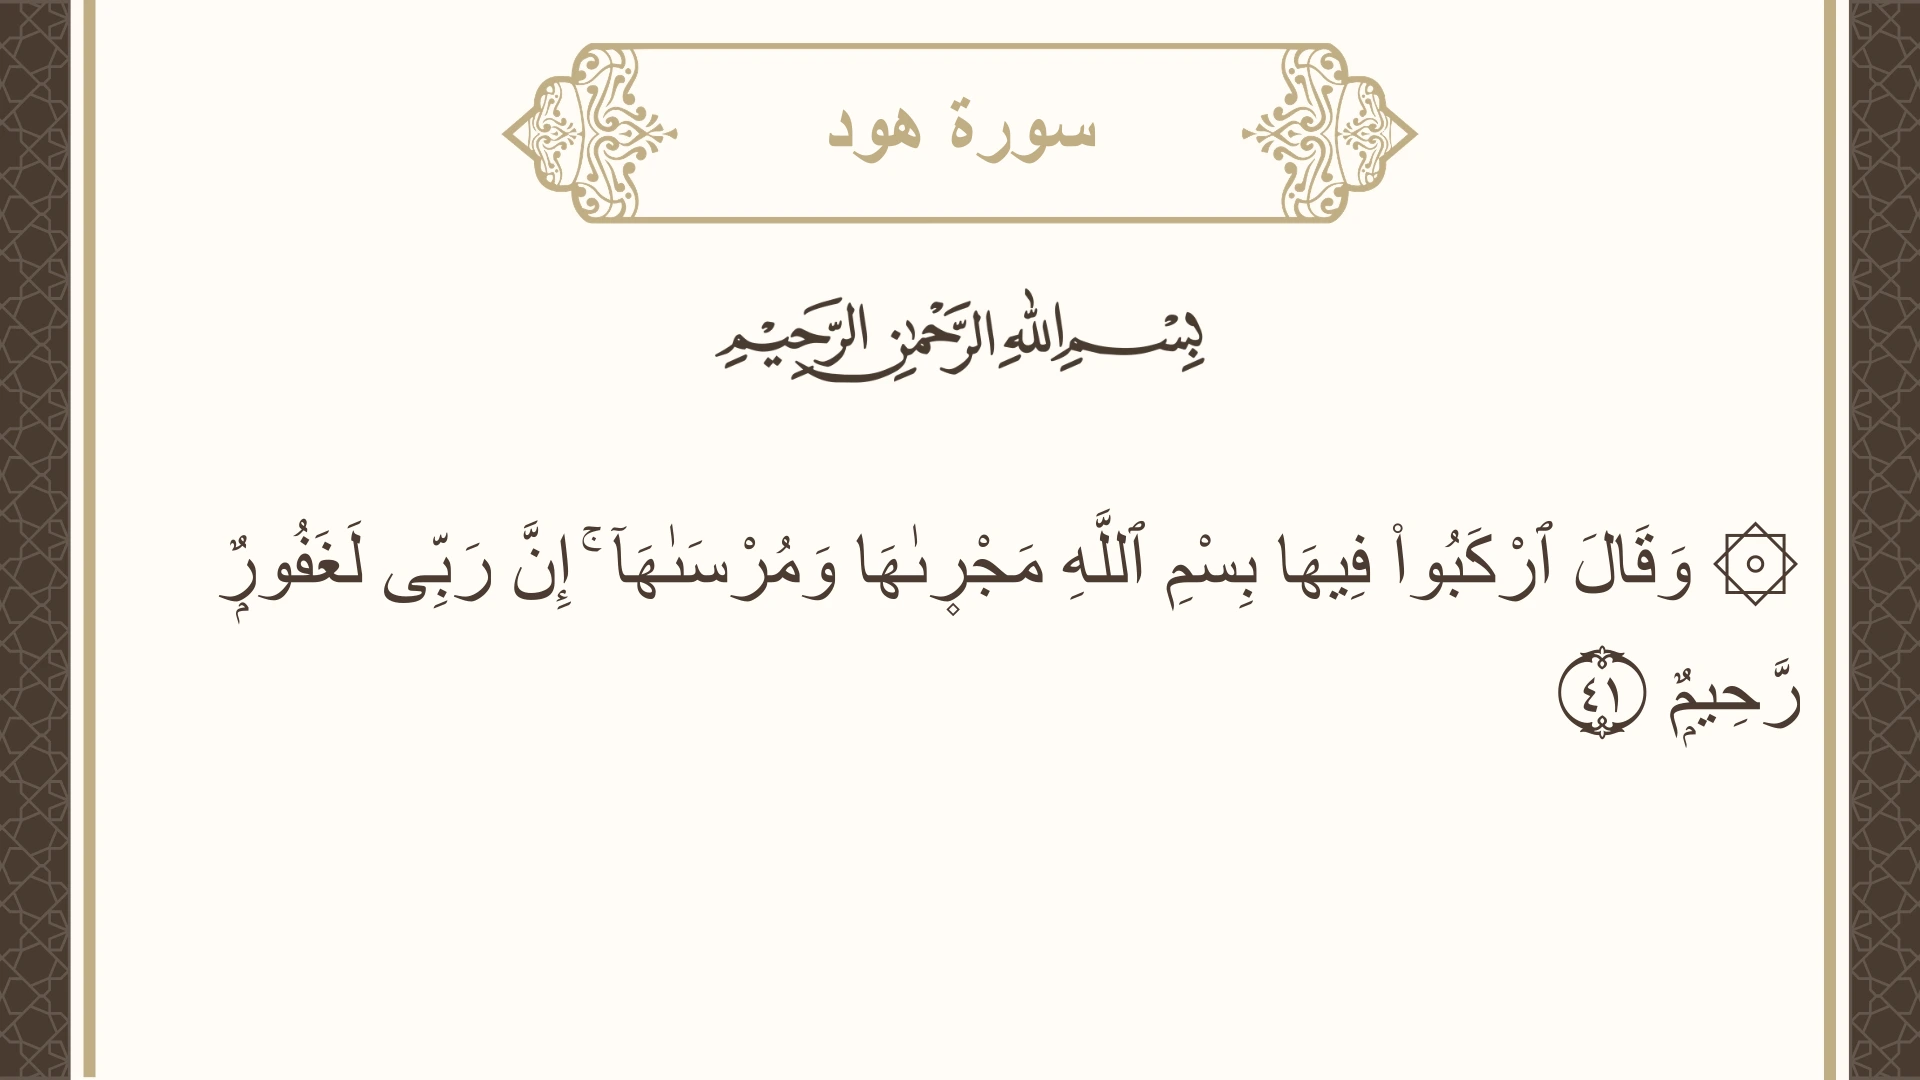 سورة هود
بِسْمِ اللهِ الرَّحْمٰنِ الرَّحِيْمِ
۞ وَقَالَ ٱرْكَبُوا۟ فِيهَا بِسْمِ ٱللَّهِ مَجْر۪ىٰهَا وَمُرْسَىٰهَآ ۚ إِنَّ رَبِّى لَغَفُورٌۭ
رَّحِيمٌۭ ٤١